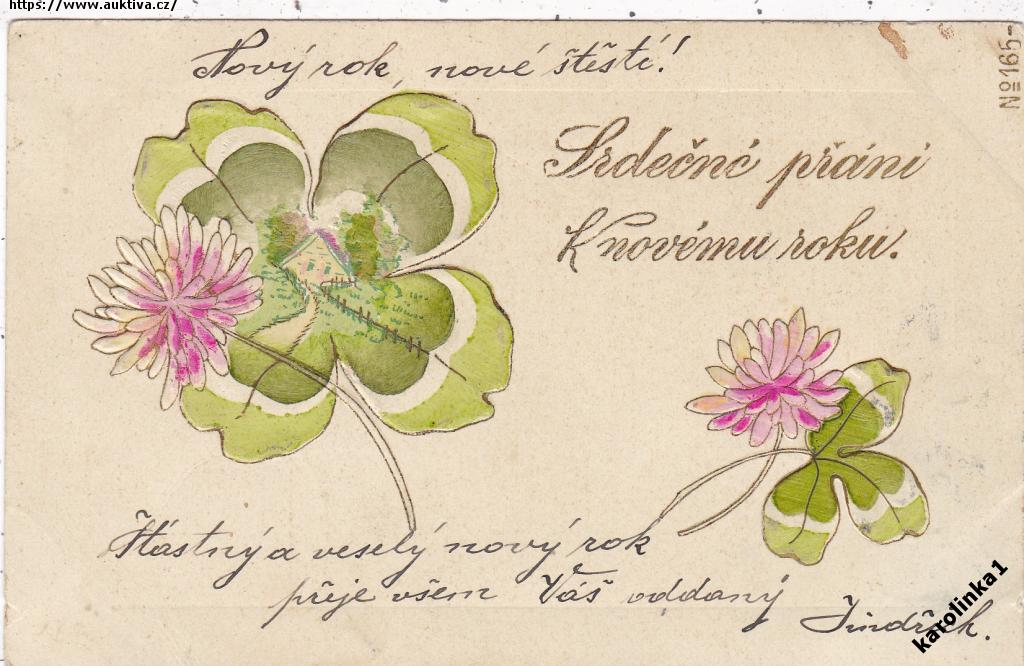 https://www.auktiva.cz/
Nový rok, nové štěstí!
No 165-
Srdečné přání
K novému roku.
Šťastný a veselý nový rok
přeje všem Váš oddaný
Jindřich.
karolinka1